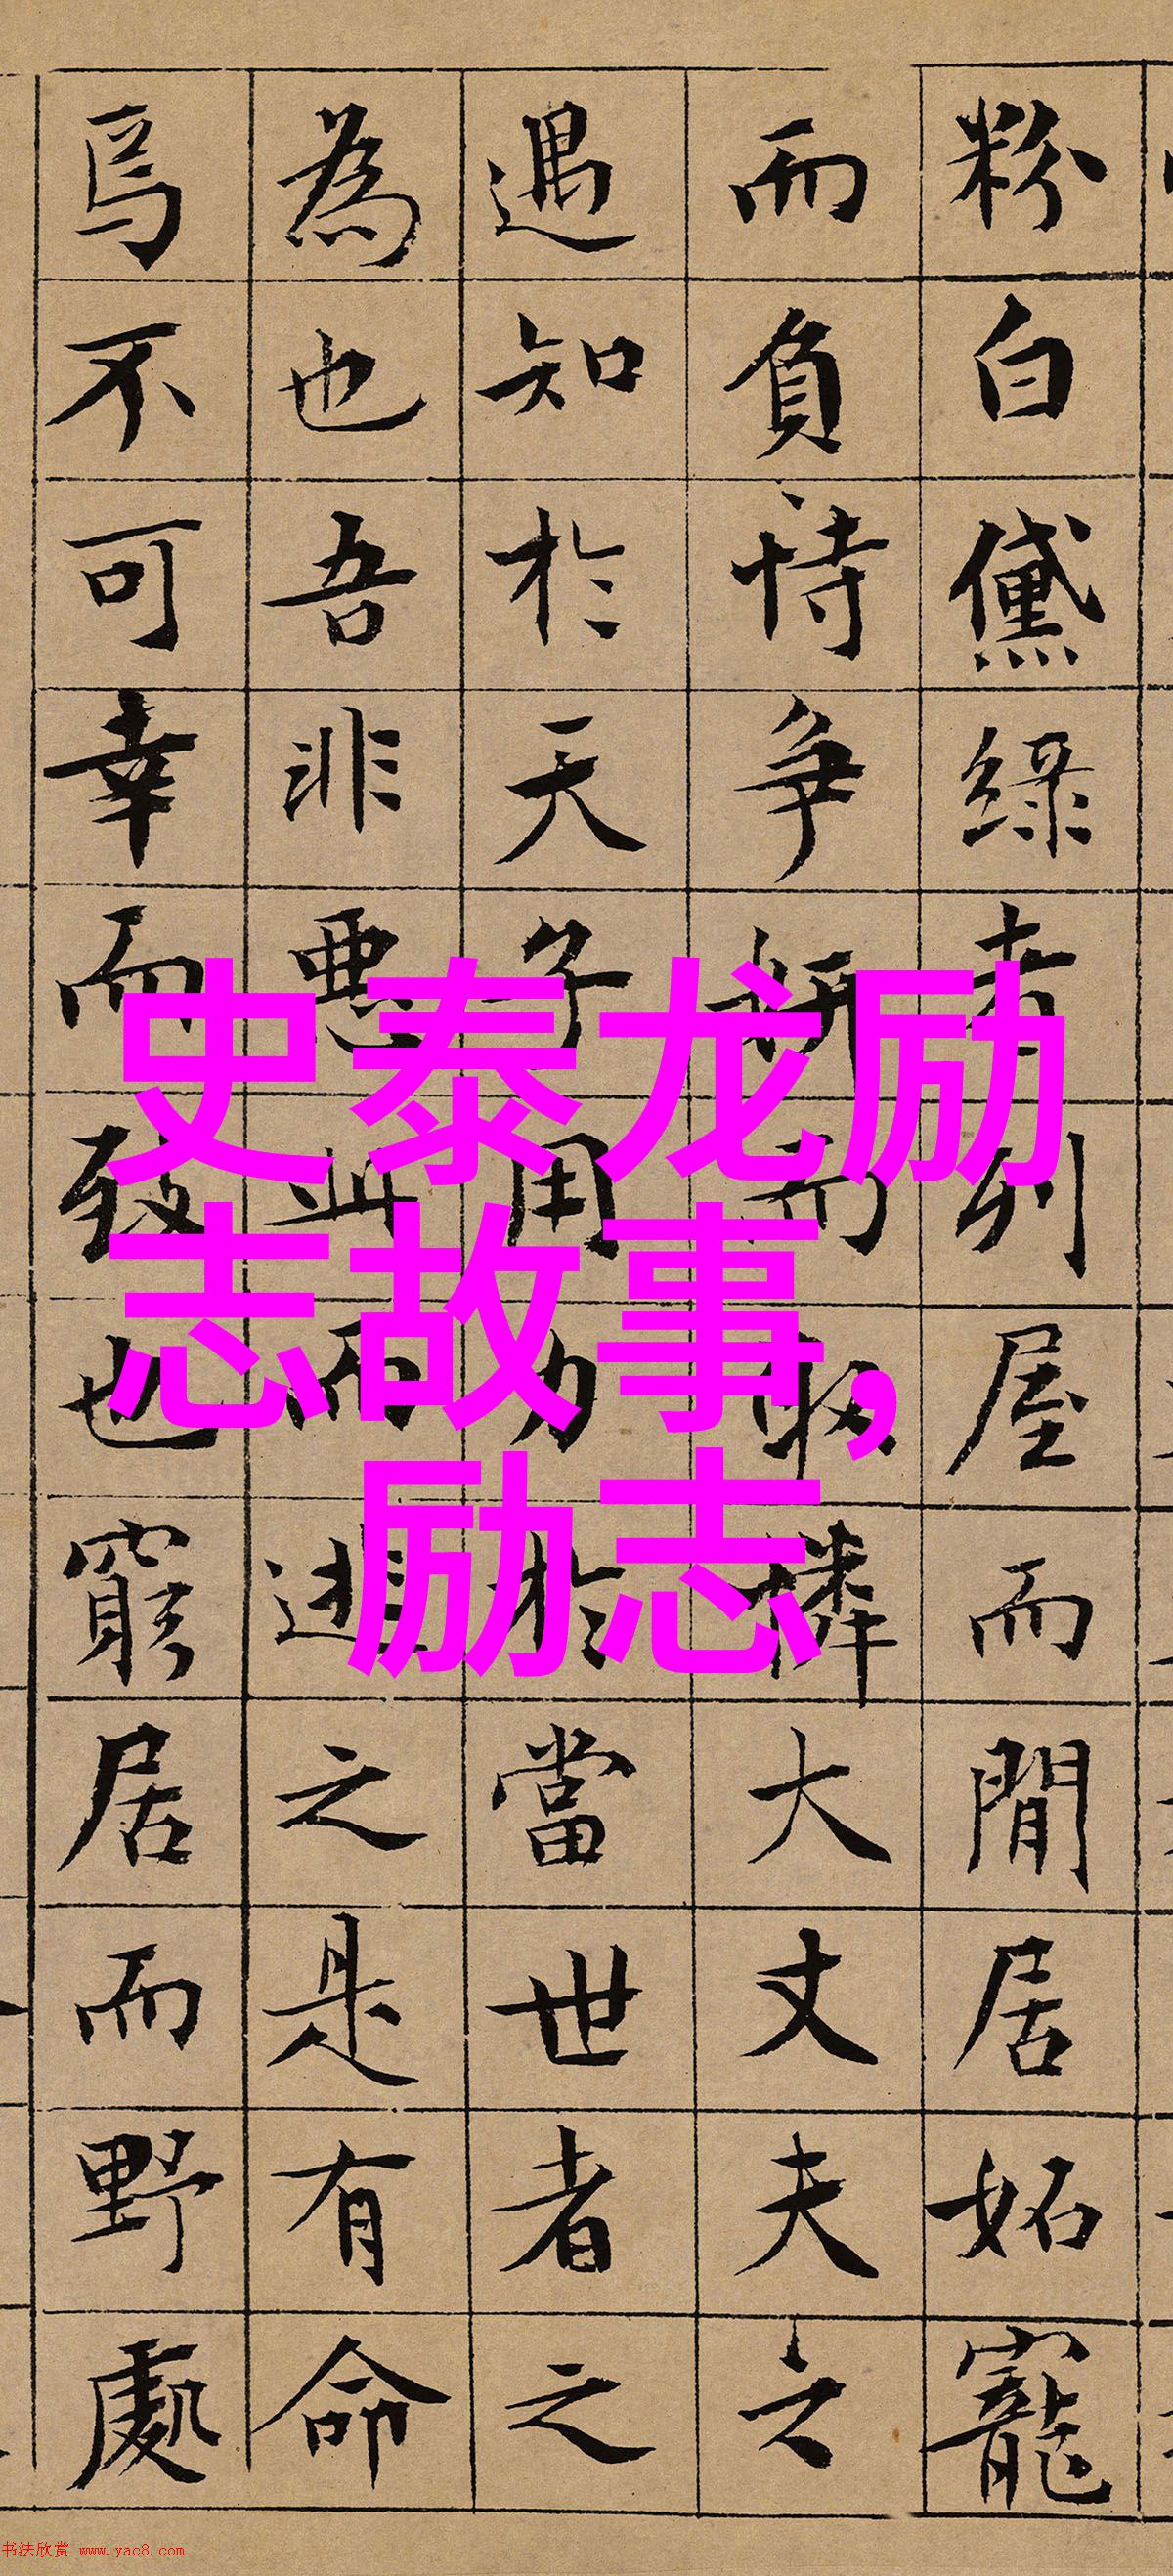 粉白黛綠者列屋而閒居妬寵
而負恃争妍而取憐大丈夫之
遇知於天子用力於當世者之
為也吾非惡此而逃之是有命
焉不可幸而致也窮居而野處
史泰龙励
志故事,
励志
书法欣赏 www.yac8.com